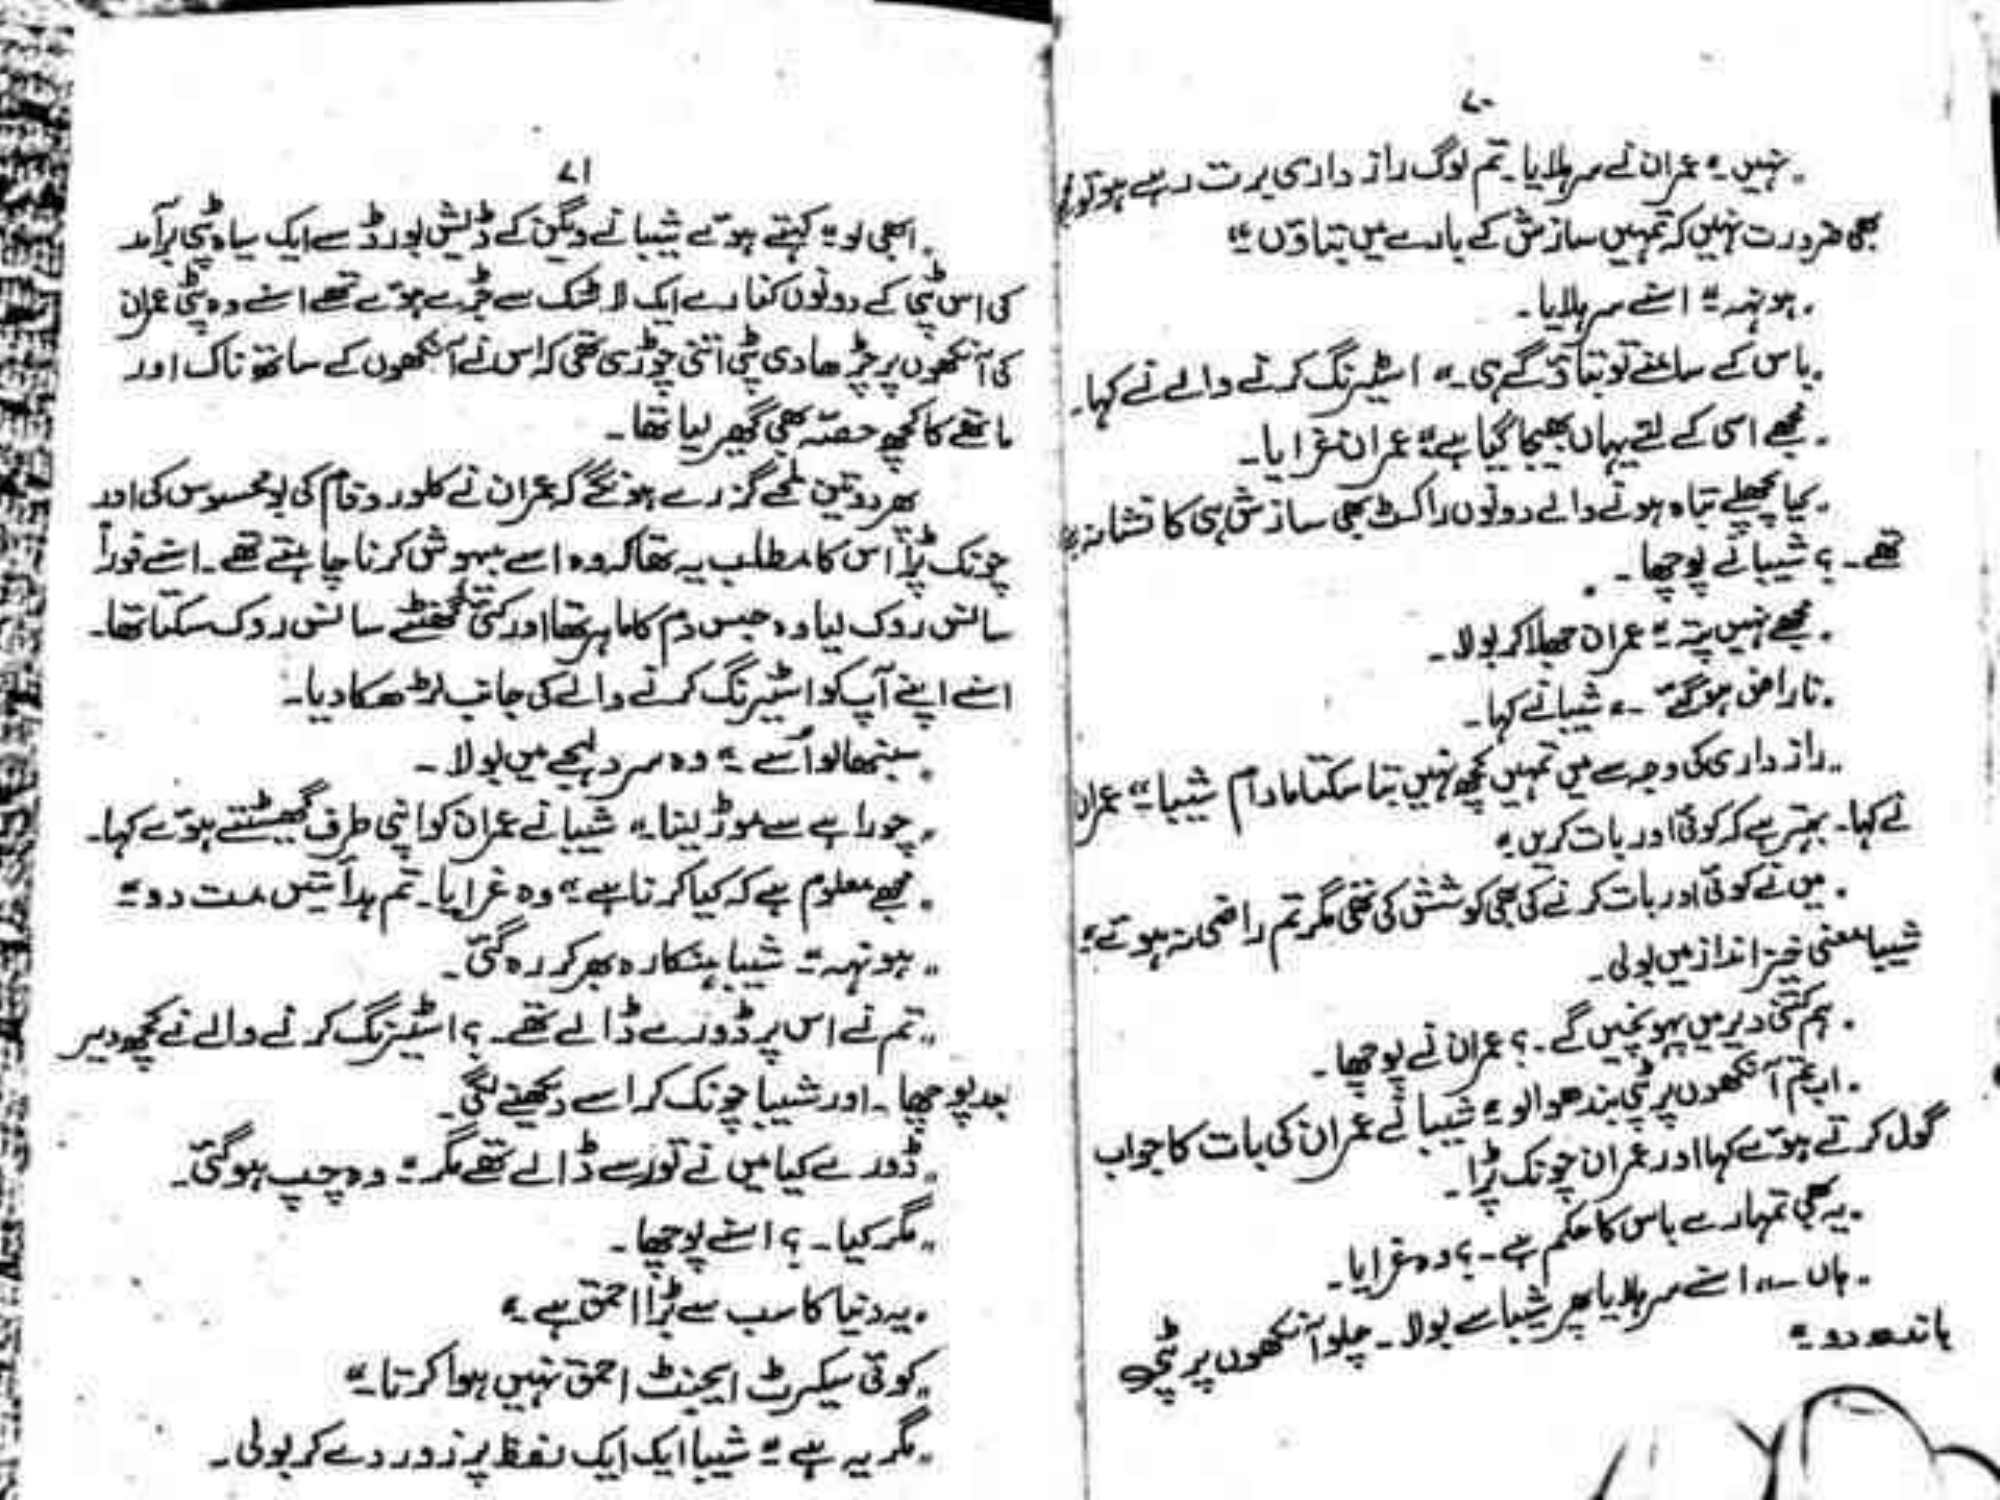 ۷۰
"نہیں" عمران نے سر ہلایا۔ تم لوگ راز داری برت رہے ہو تو
بھی ضرورت نہیں کہ تمہیں سازش کے بارے میں بتاؤں"
"ہونہہ" اسنے سر ہلایا۔
"باس کے سامنے تو بتاؤ گے ہی۔" اسٹیرنگ کرنے والے نے کہا۔
"مجھے اسی کے لئے یہاں بھیجا گیا ہے" عمران غرایا۔
"کیا پچھلے تباہ ہونے والے دونوں راکٹ بھی سازش ہی کا نشانہ
تھے۔؟ شیبا نے پوچھا۔
"مجھے نہیں پتہ" عمران جھلا کر بولا۔
"ناراض ہو گئے۔" شیبا نے کہا۔
"راز داری کی وجہ سے میں تمہیں کچھ نہیں بتا سکتا مادام شیبا" عمران
نے کہا۔ بہتر ہے کہ کوئی اور بات کریں"
"میں نے کوئی اور بات کرنے کی بھی کوشش کی تھی مگر تم راضی نہ ہوئے"
شیبا معنی خیز انداز میں بولی۔
"ہم کتنی دیر میں پہونچیں گے۔؟ عمران نے پوچھا۔
"اب تم آنکھوں پر پٹی بندھوا لو" شیبا نے عمران کی بات کا جواب
گول کرتے ہوئے کہا اور عمران چونک پڑا۔
"یہ بھی تمہارے باس کا حکم ہے۔؟ وہ غرایا۔
"ہاں۔" اسنے سر ہلایا پھر شیبا سے بولا۔ چلو آنکھوں پر پٹی
باندھ دو"
۷۱
"ابھی لو" کہتے ہوئے شیبا نے ویگن کے ڈیش بورڈ سے ایک سیاہ پٹی برآمد
کی اس پٹی کے دونوں کنارے ایک لاسٹک سے جڑے ہوئے تھے اسنے وہ پٹی عمران
کی آنکھوں پر چڑھا دی پٹی اتنی چوڑی تھی کہ اس نے آنکھوں کے ساتھ ناک اور
ماتھے کا کچھ حصّہ بھی گھیر لیا تھا۔
پھر دو تین لمحے گزرے ہونگے کہ عمران نے کلوروفام کی بو محسوس کی اور
چونک پڑا اس کا مطلب یہ تھا کہ وہ اسے بیہوش کرنا چاہتے تھے۔ اسنے فوراً
سانس روک لیا وہ حبس دم کا ماہر تھا اور کئی گھنٹے سانس روک سکتا تھا۔
اسنے اپنے آپ کو اسٹیرنگ کرنے والے کی جانب لڑھکا دیا۔
"سنبھالو اُسے" وہ سرد لہجے میں بولا۔
"چوراہے سے موڑ لینا۔" شیبا نے عمران کو اپنی طرف گھسیٹتے ہوئے کہا۔
"مجھے معلوم ہے کہ کیا کرنا ہے" وہ غرایا۔ تم ہدائتیں مت دو"
"ہونہہ" شیبا ہنکارہ بھر کر رہ گئی۔
"تم نے اس پر ڈورے ڈالے تھے۔؟ اسٹیرنگ کرنے والے نے کچھ دیر
بعد پوچھا۔ اور شیبا چونک کر اسے دیکھنے لگی۔
"ڈورے کیا میں نے تو رسے ڈالے تھے مگر" وہ چپ ہو گئی۔
"مگر کیا۔؟ اسنے پوچھا۔
"یہ دنیا کا سب سے بڑا احمق ہے۔"
"کوئی سیکرٹ ایجنٹ احمق نہیں ہوا کرتا۔"
"مگر یہ ہے" شیبا ایک ایک لفظ پر زور دے کر بولی۔